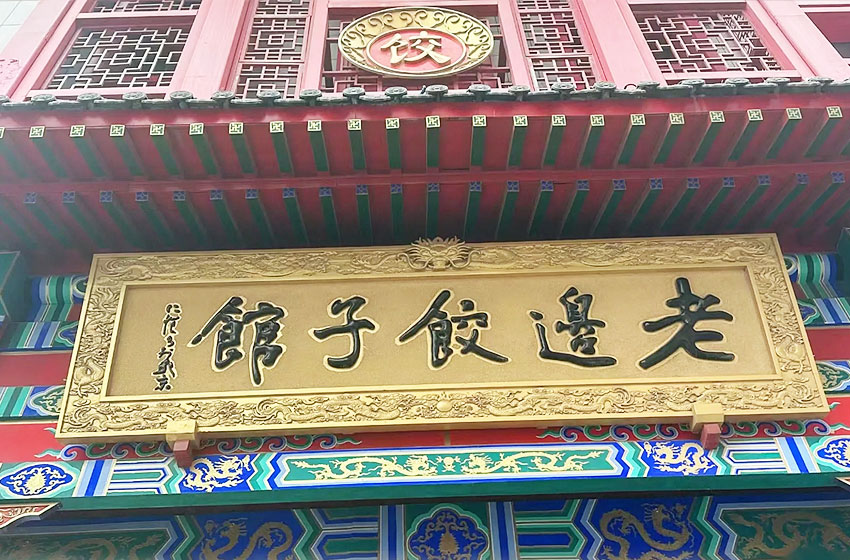 餃
老邊餃子館